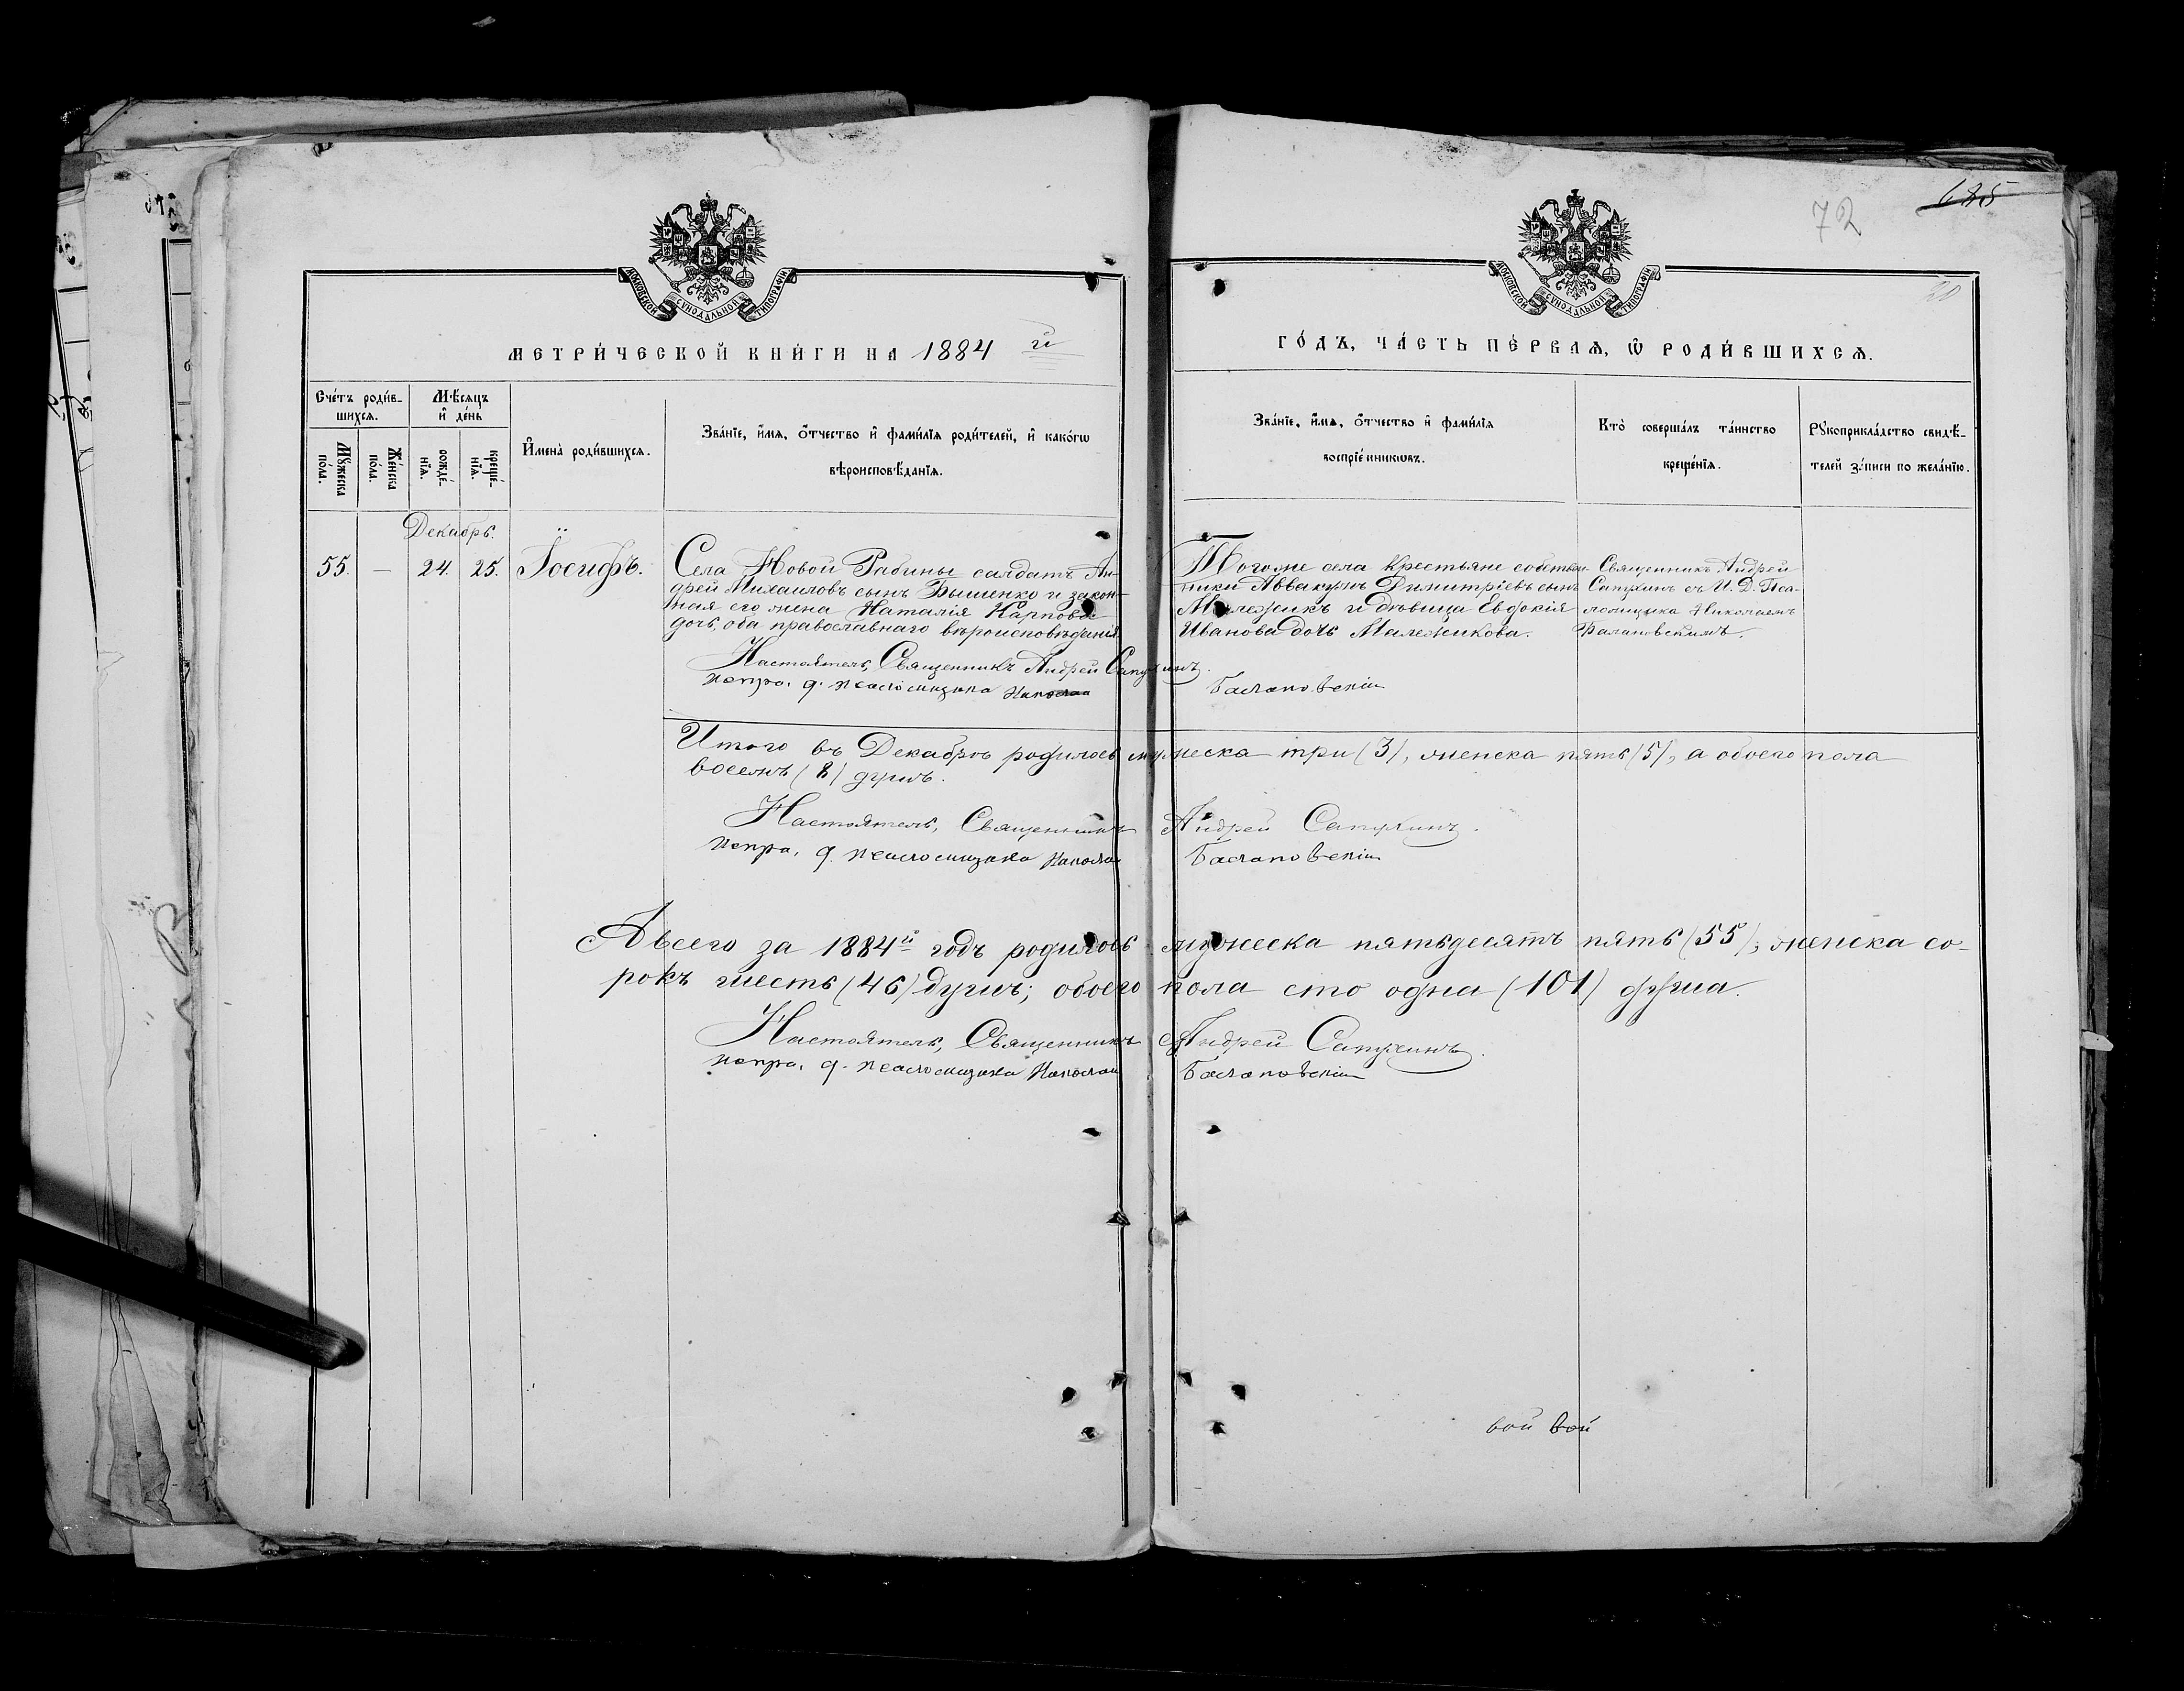 72
685
20
МОСКОВСКОЙ СУНОДАЛЬНОЙ ТИПОГРАФІИ
МОСКОВСКОЙ СУНОДАЛЬНОЙ ТИПОГРАФІИ
МЕТРИ́ЧЕСКОЙ КНИ́ГИ НА 1884 й
ГО́ДЪ, ЧА́СТЬ ПЕ́РВАЯ, Ѡ҆ РОДИ́ВШИХСЯ.
Сче́тъ роди́в-
шихся.
Мѣ́сяцъ
и҆ де́нь
Мꙋ́жеска
по́ла.
Же́нска
по́ла.
рожде́-
нїя.
креще́-
нїя.
И҆мена̀ роди́вшихся.
Зва́нїе, и҆́мя, ѻ҆́тчество и҆ фами́лїя роди́телей, и҆ како́гѡ
вѣроисповѣ́данїя.
Зва́нїе, и҆́мя, ѻ҆́тчество и҆ фами́лїя
воспріе́мникѡвъ.
Кто̀ соверша́лъ та́инство
креще́нїя.
Рꙋкоприкла́дство свидѣ́-
телей за́писи по жела́нїю.
Декабрь.
55. — 24. 25. Іосифъ.
Села Новой Рабины салдатъ Ан-
дрей Михаиловъ сынъ Бышенко и закон-
ная его жена Наталія Карпова
дочь, оба православнаго вѣроисповѣданія.
Тогоже села крестьяне собствен-
ники Аввакумъ Димитріевъ сынъ
Малежикъ и дѣвица Евдокія
Иванова дочь Малежикова.
Священникъ Андрей
Сапухинъ съ И. Д. Пса-
ломщика Николаемъ
Балановскимъ.
Настоятель, Священникъ Андрей Сапухинъ.
испра. д. псаломщика Николай Балановскій
Итого въ Декабрѣ родилось мужеска три (3), женска пять (5), а обоего пола
восемь (8) душъ.
Настоятель, Священникъ Андрей Сапухинъ.
испра. д. псаломщика Николай Балановскій
А всего за 1884й годъ родилось мужеска пятьдесятъ пять (55), женска со-
рокъ шесть (46) душъ; обоего пола сто одна (101) душа.
Настоятель, Священникъ Андрей Сапухинъ.
испра. д. псаломщика Николай Балановскій
вой вой